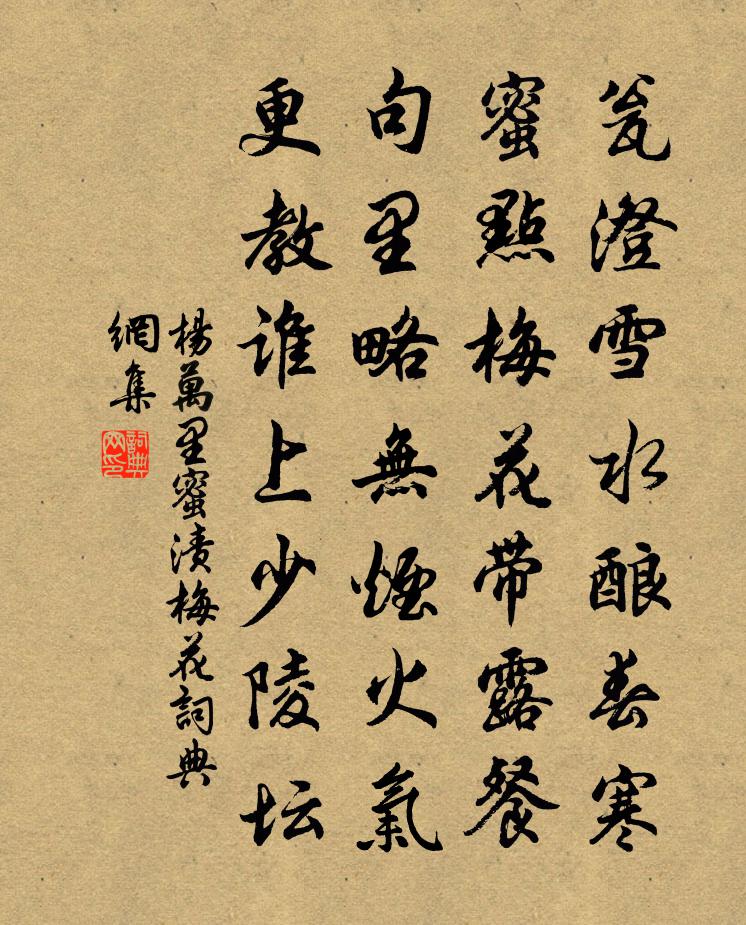 瓮澄雪水酿春寒
蜜點梅花带露餐
句里略無煙火氣
更教谁上少陵坛
楊萬里蜜漬梅花詞典
網集
詞典網印